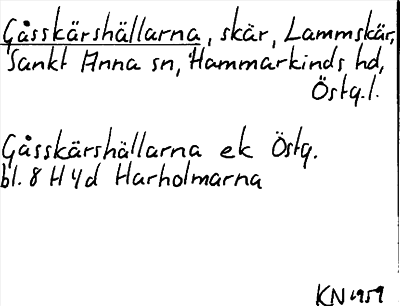 Gåsskärshällarna, skär, Lammskär,
Sankt Anna sn, Hammarkinds hd,
Östg.l.
Gåsskärshällarna ek Östg.
bl. 8 H 4d Harholmarna
KN 1959